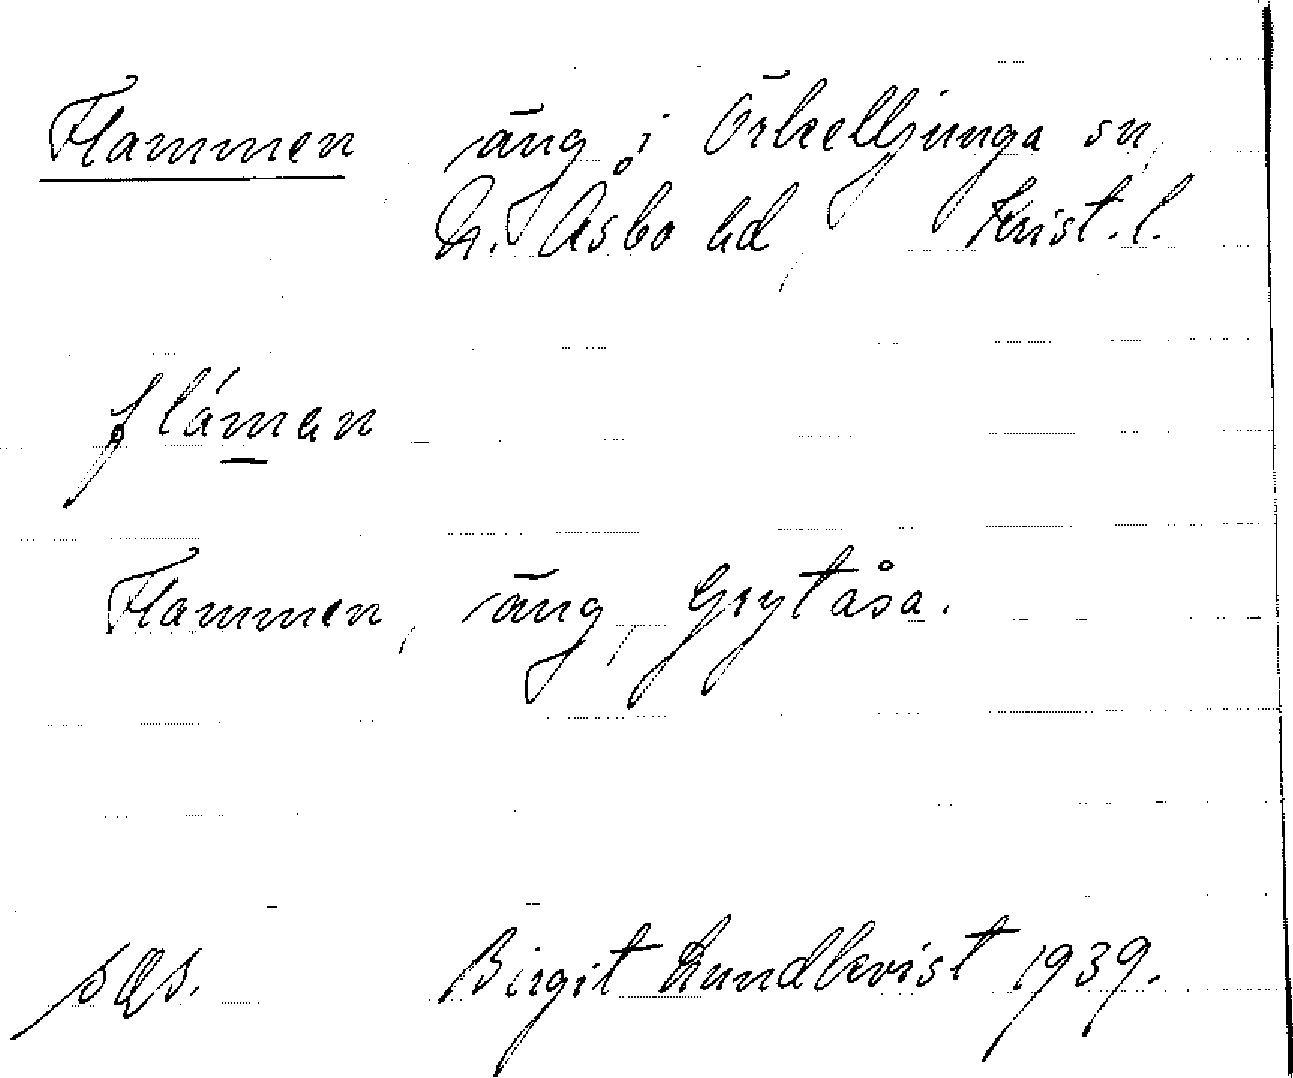 Flammen äng i Örkelljunga sn,
N. Åsbo hd, Krist. l.
fláman
Flammen, äng, Grytåsa.
Birgit Lundkvist 1939.